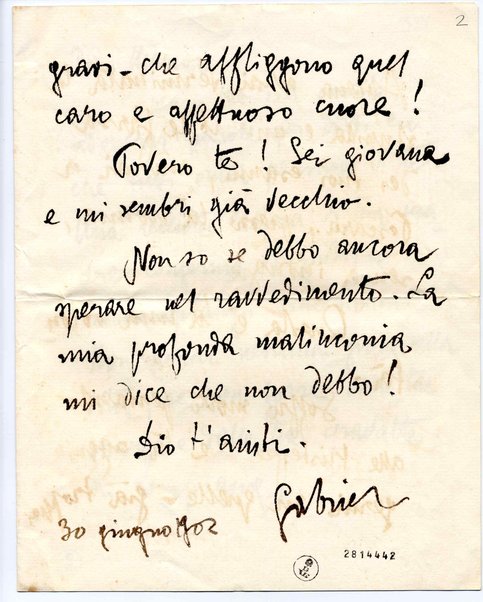 2
gravi - che affliggono quel
caro e affettuoso cuore!
Povero te! Sei giovane
e mi sembri già vecchio.
Non so se debbo ancora
sperare nel ravvedimento. La
mia profonda malinconia
mi dice che non debbo!
Dio t'aiuti.
Gabriel
30 giugno 1902
2814442